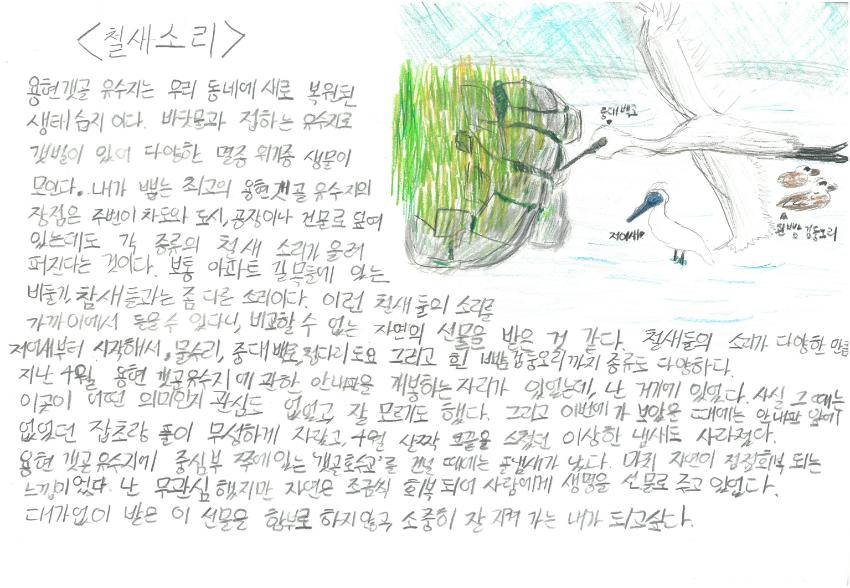 <철새소리>
용현갯골 유수지는 우리 동네에 새로 복원된
생태 습지 이다. 바닷물과 접하는 유수지로
갯벌이 있어 다양한 멸종 위기종 생물이
모인다. 내가 뽑는 최고의 용현갯골 유수지의
장점은 주변이 차도와 도시, 공장이나 건물로 덮여
있는데도 각 종류의 철새 소리가 울려
퍼진다는 것이다. 보통 아파트 길목들에 있는
비둘기, 참새들과는 좀 다른 소리이다. 이런 철새들의 소리를
가까이에서 들을 수 있다니, 비교할 수 없는 자연의 선물을 받은 것 같다. 철새들의 소리가 다양한 만큼
저어새부터 시작해서, 물수리, 중대백로, 청다리도요 그리고 흰 뺨검둥오리까지 종류도 다양하다.
지난 4월 용현 갯골유수지에 관한 안내판을 개봉하는 자리가 있었는데, 난 거기에 있었다. 사실 그 때는
이곳이 어떤 의미인지 관심도 없었고, 잘 모르기도 했다. 그리고 이번에 가 보았을 때에는 안내판 앞에
없었던 잡초랑 풀이 무성하게 자라고, 4월 살짝 코끝을 스쳤던 이상한 냄새도 사라졌다.
용현 갯골유수지에 중심부 쪽에 있는 '갯골호수교'를 건널 때에는 풀냄새가 났다. 마치 자연이 점점회복 되는
느낌이었다. 난 무관심 했지만 자연은 조금씩 회복 되어 사람에게 생명을 선물로 주고 있었다.
대가없이 받은 이 선물을 함부로 하지않고, 소중히 잘 지켜 가는 내가 되고싶다.
중대백로
저어새
흰뺨검둥오리